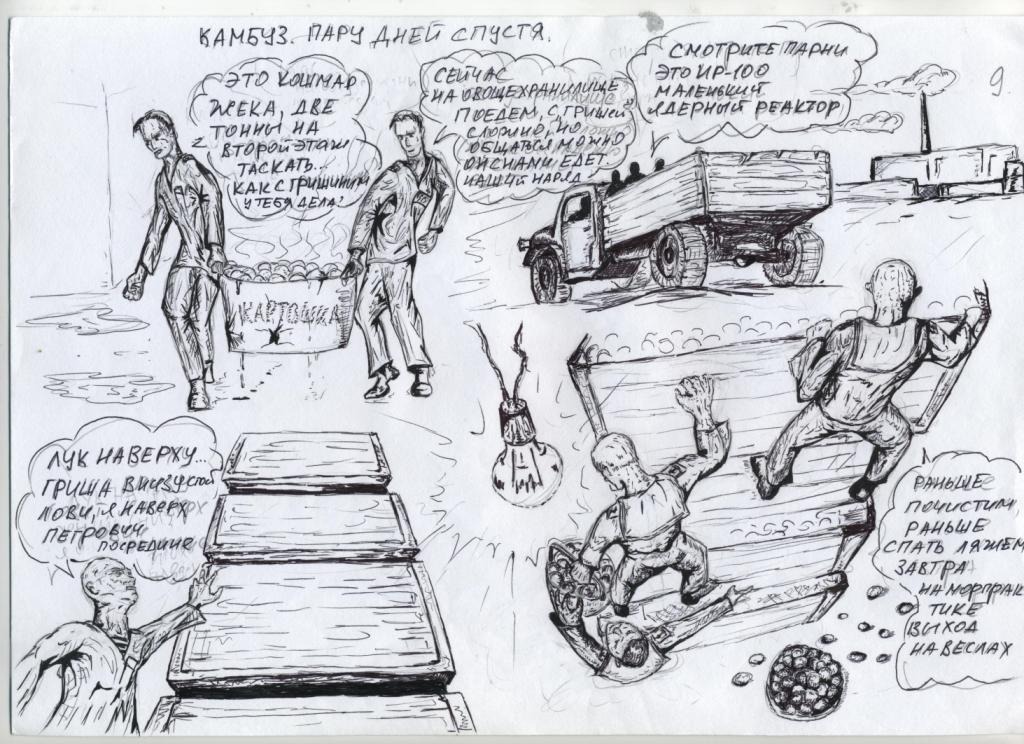 КАМБУЗ. ПАРУ ДНЕЙ СПУСТЯ.
9.
ЭТО КОШМАР
ЖЕКА, ДВЕ
ТОННЫ НА
ВТОРОЙ ЭТАЖ
ТАСКАТЬ...
КАК С ГРИШИНЫМ
У ТЕБЯ ДЕЛА?
СЕЙЧАС
НА ОВОЩЕХРАНИЛИЩЕ
ПОЕДЕМ, С ГРИШЕЙ
СЛОЖНО, НО
ОБЩАТЬСЯ МОЖНО
ОН С НАМИ ЕДЕТ
НАШ НАРЯД
СМОТРИТЕ ПАРНИ
ЭТО ИР-100
МАЛЕНЬКИЙ
ЯДЕРНЫЙ РЕАКТОР
КАРТОШКА
ЛУК НАВЕРХУ...
ГРИША ВНИЗУ СТОЙ
ЛОВИ, Я НАВЕРХ
ПЕТРОВИЧ
ПОСРЕДИНЕ
РАНЬШЕ
ПОЧИСТИМ,
РАНЬШЕ
СПАТЬ ЛЯЖЕМ
ЗАВТРА
НА МОРПРАК
ТИКЕ
ВЫХОД
НА ВЕСЛАХ